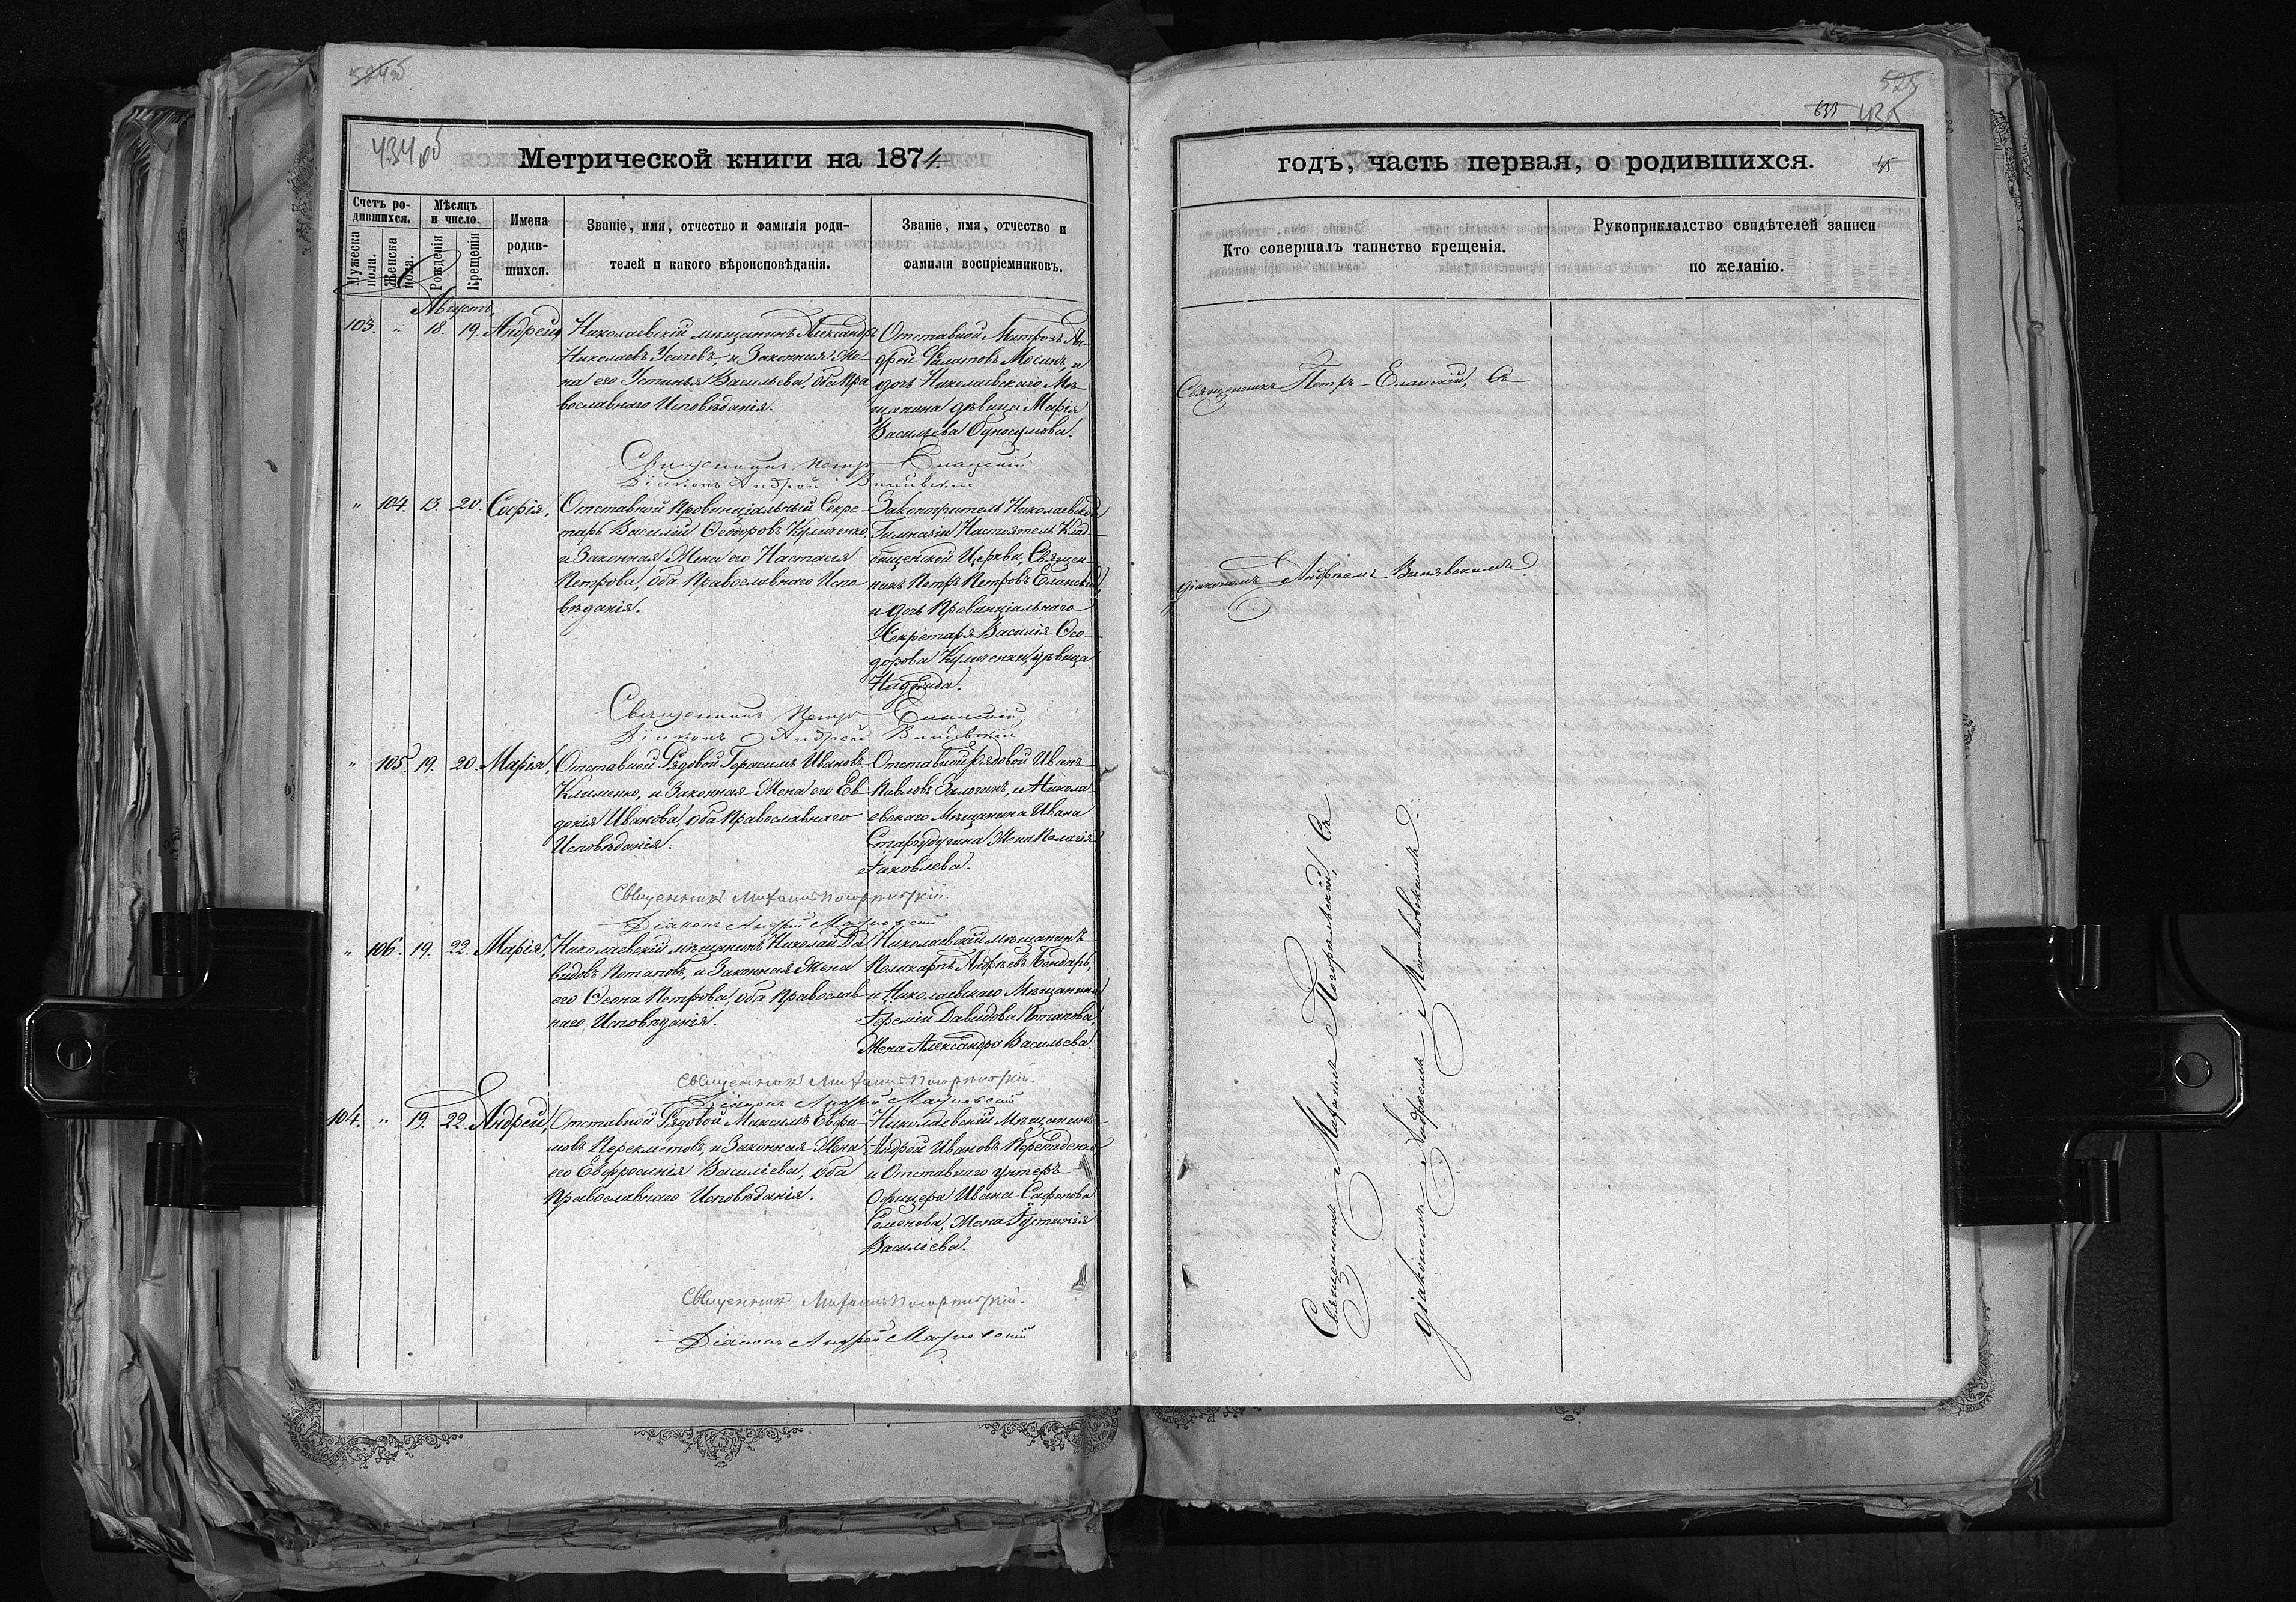 434 об
Метрической книги на 1874
Счетъ ро-
дившихся.
Мужеска
пола.
Женска
пола.
Мѣсяцъ
и число.
Рожденія
Крещенія
Имена
родив-
шихся.
Званіе, имя, отчество и фамилія роди-
телей и какого вѣроисповѣданія.
Званіе, имя, отчество и
фамилія воспріемниковъ.
Августъ
103. " 18. 19. Андрей,
Николаевскій мѣщанинъ Александръ
Николаевъ Усачевъ, и Законная Же-
на его Устинья Васильева, оба Пра
вославнаго Исповѣданія.
Отставной Матрозъ Ан-
дрей Филатовъ Мосинъ, и
дочь Николаевскаго Мѣ
щанина дѣвица Марія
Васильева Односумова.
Священникъ Петръ Еланскій
Діаконъ Андрей
" 104. 13. 20. Софія,
Отставной Провинціальный Секре-
тарь Василій Ѳеодоровъ Куличенко,
и Законная Жена его Настасія
Петрова, оба Православнаго Испо
вѣданія.
Законоучитель Николаевской
Гимназіи Настоятель Клад-
бищенской Церкви, Священ-
никъ Петръ Петровъ Еланскій,
и дочь Провинціальнаго
Секретаря Василія Ѳео-
дорова Куличенки, дѣвица
Надежда.
Священникъ Петръ Еланскій,
Діаконъ Андрей
" 105. 19. 20. Марія,
Отставной Рядовой Герасимъ Ивановъ
Клименко, и Законная Жена его Ев
докія Иванова, оба Православнаго
Исповѣданія.
Отставной рядовой Иванъ
Павловъ Залогинъ, и Никола-
евскаго Мѣщанина Ивана
Стародубчина Жена Пелагія
Іаковлева.
Священникъ Михаилъ Погорѣльскій.
Діаконъ Андрей Матковскій
" 106. 19. 22. Марія,
Николаевскій мѣщанинъ Николай Да
видовъ Потаповъ, и Законная Жена
его Ѳеона Петрова, оба Православ
наго Исповѣданія.
Николаевскій мѣщанинъ
Поликарпъ Андреевъ Бондарь,
и Николаевскаго Мѣщанина
Іереміи Давидова Потапова,
Жена Александра Васильева.
Священникъ Михаилъ Погорѣльскій.
Діаконъ Андрей Матковскій
104. " 19. 22. Андрей,
Отставной Рядовой Максимъ Евфи-
мовъ Переклетовъ, и Законная Жена
его Евфросинія Василіева, оба
Православнаго Исповѣданія.
Николаевскій Мѣщанинъ
Андрей Ивановъ Перепаденко
и Отставнаго унтеръ
Офицера Ивана Сафонова
Семенова, Жена Іустинія
Василіева.
Священникъ Михаилъ Погорѣльскій.
Діаконъ Андрей Матковскій
525
633 435
годъ, часть первая, о родившихся. 45
Кто совершалъ таинство крещенія.
Рукоприкладство свидѣтелей записи
по желанію.
Священникъ Петръ Еланскій, Съ
діакономъ Андреемъ Винявскимъ.
Священникъ Михаилъ Погорѣльскій, Съ
діакономъ Андреемъ Матковскимъ.